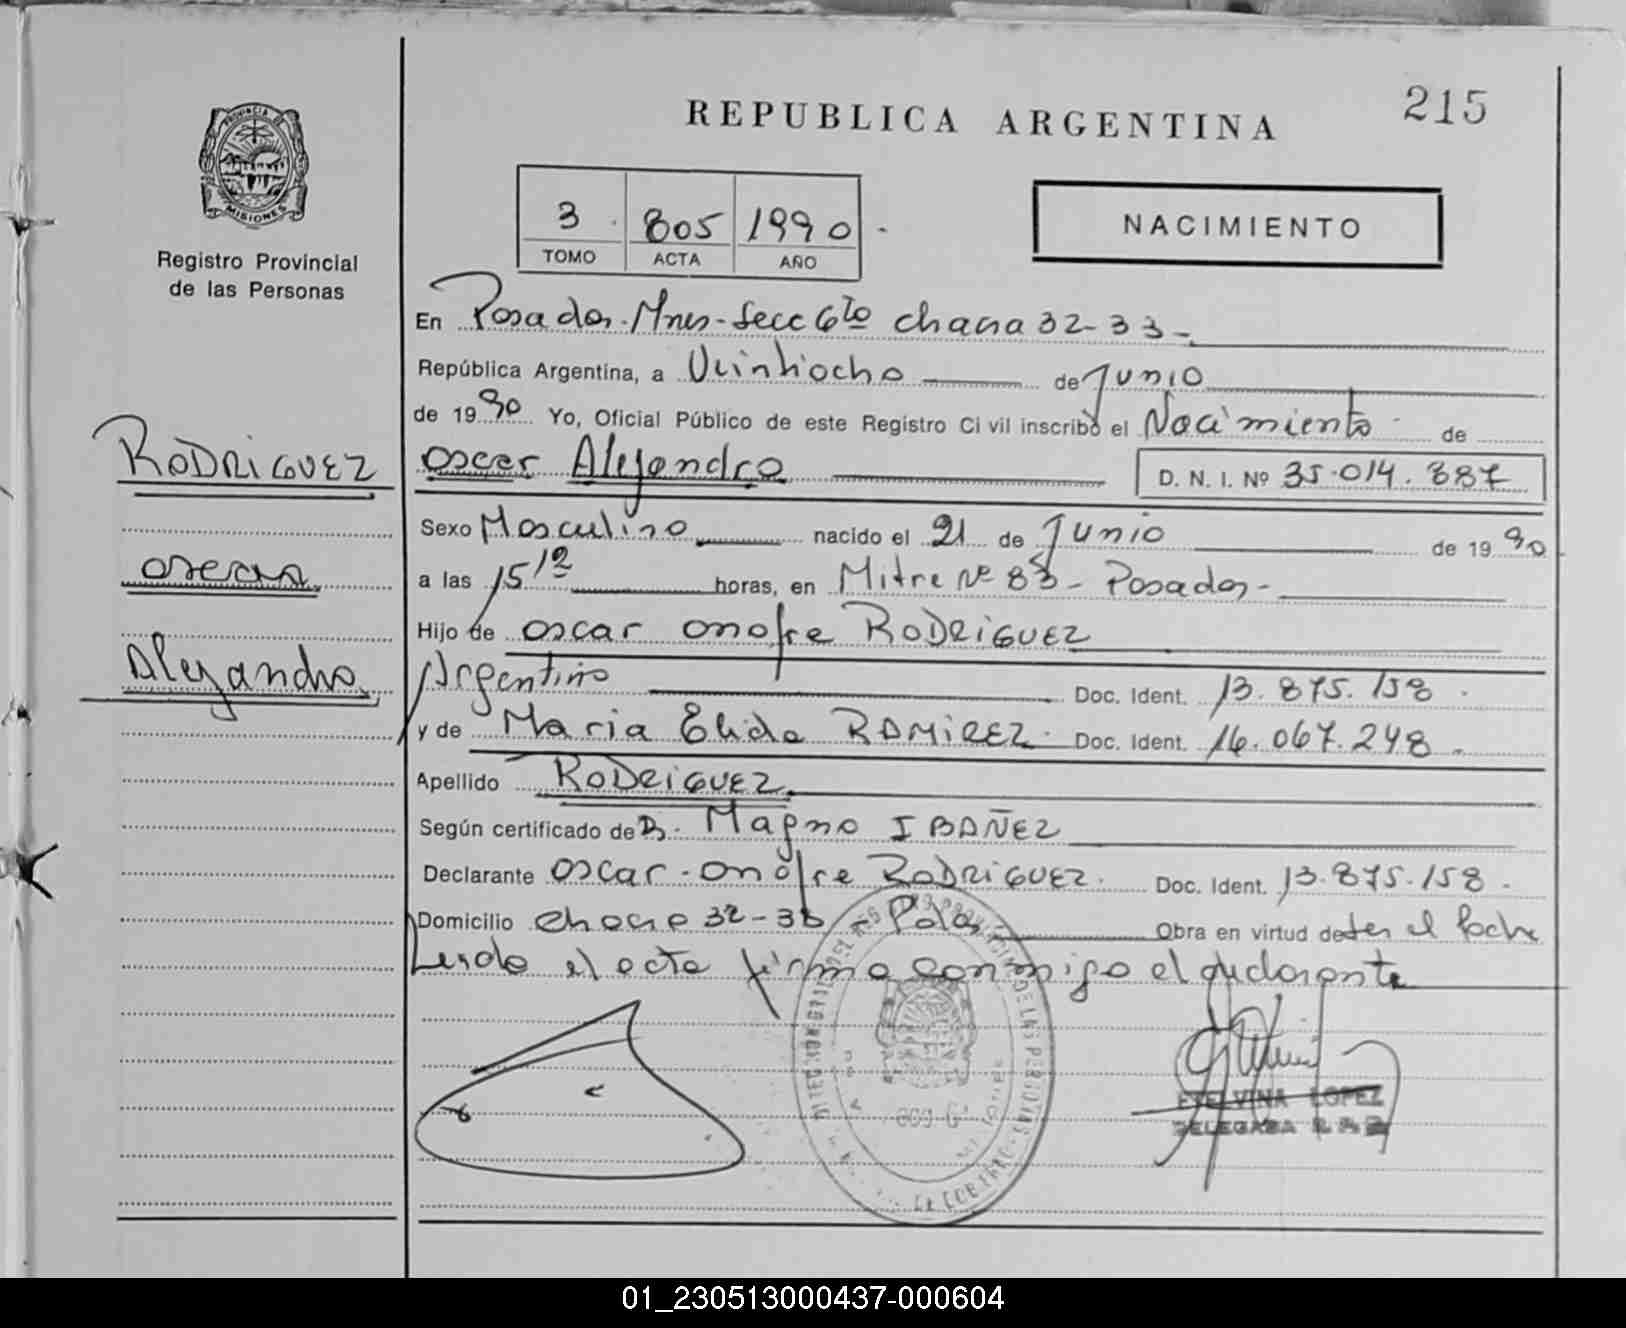 215
REPUBLICA ARGENTINA
PROVINCIA DE
MISIONES
Registro Provincial
de las Personas
3 805 1990
TOMO ACTA AÑO
NACIMIENTO
En Posadas-Mnes-Secc 6to chacra 32-33-
República Argentina, a Veintiocho de Junio
de 1990 Yo, Oficial Público de este Registro Civil inscribo el Nacimiento de
Oscar Alejandro D. N. I. Nº 35.014.887
RODRIGUEZ
Oscar
Alejandro
Sexo Masculino nacido el 21 de Junio de 1990
a las 15 12 horas, en Mitre Nº 83- Posadas-
Hijo de Oscar Onofre RODRIGUEZ
Argentino Doc. Ident. 13.875.158.
y de Maria Elida RAMIREZ. Doc. Ident. 16.067.248.
Apellido RODRIGUEZ
Según certificado de D. Magno IBAÑEZ
Declarante Oscar-Onofre RODRIGUEZ. Doc. Ident. 13.875.158.
Domicilio chacra 32-33 - Pdas Obra en virtud de ser el Padre
Leida el acta firma conmigo el declarante
ETELVINA LOPEZ
DELEGADA
01_230513000437-000604